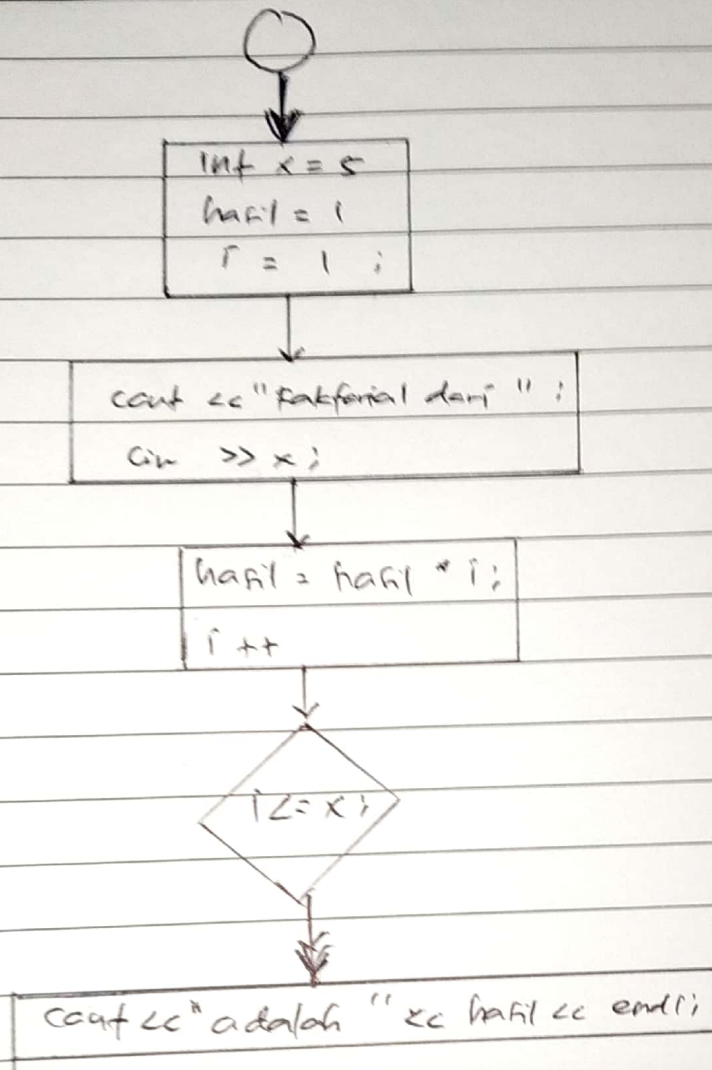 int x = 5
hasil = 1
i = 1 ;
cout << "Faktorial dari " ;
cin >> x ;
hasil = hasil * i ;
i ++
i <= x ;
cout << " adalah " << hasil << endl ;